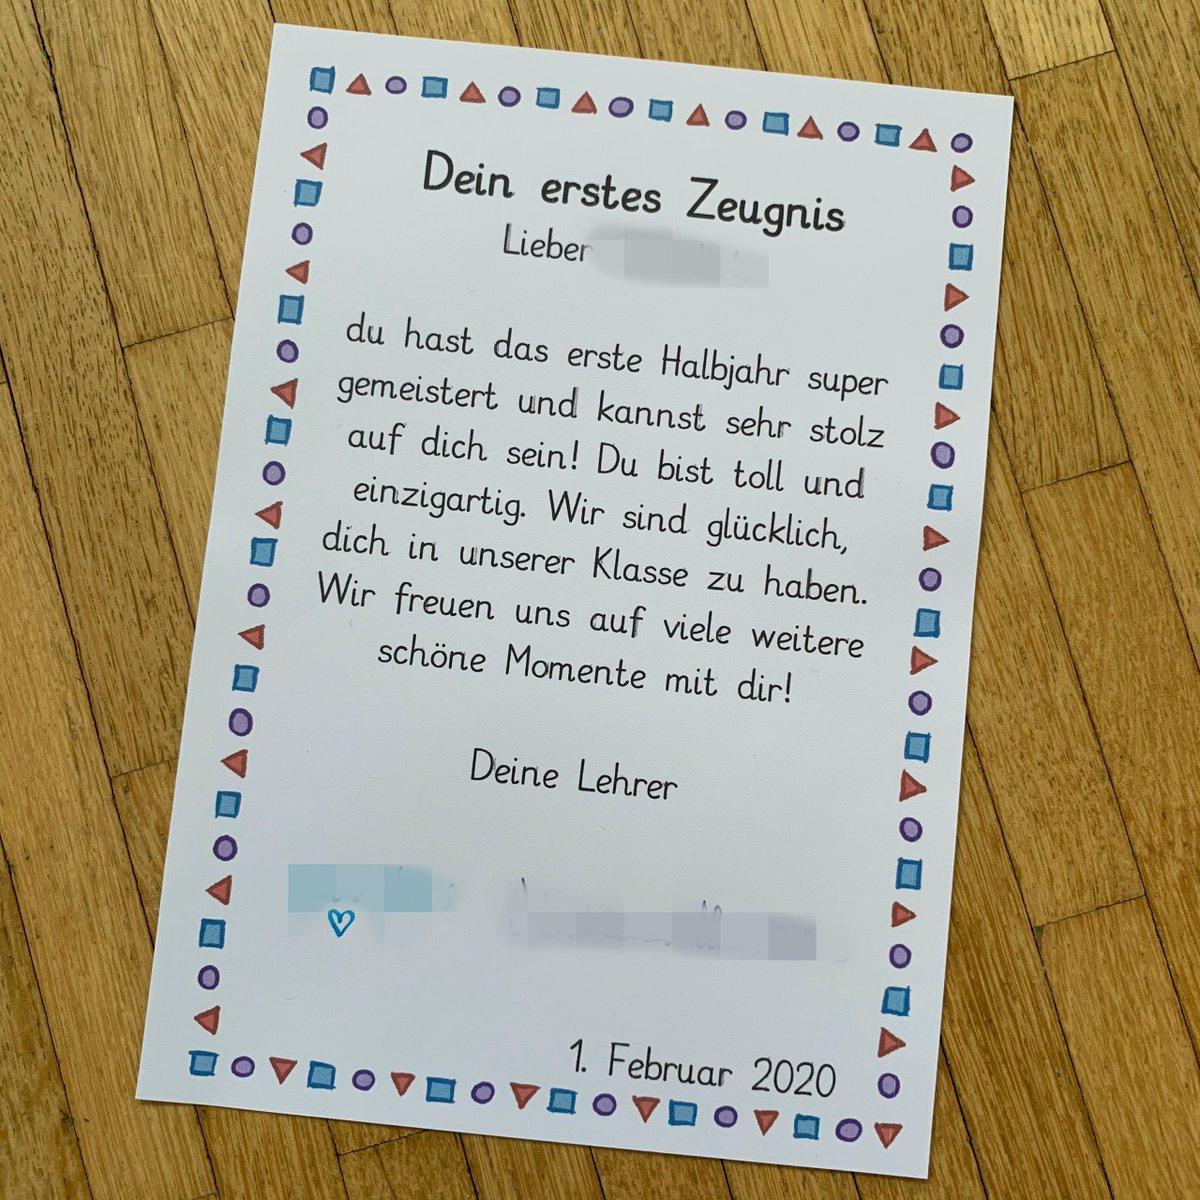 Dein erstes Zeugnis
Lieber
du hast das erste Halbjahr super
gemeistert und kannst sehr stolz
auf dich sein! Du bist toll und
einzigartig. Wir sind glücklich,
dich in unserer Klasse zu haben.
Wir freuen uns auf viele weitere
schöne Momente mit dir!
Deine Lehrer
1. Februar 2020